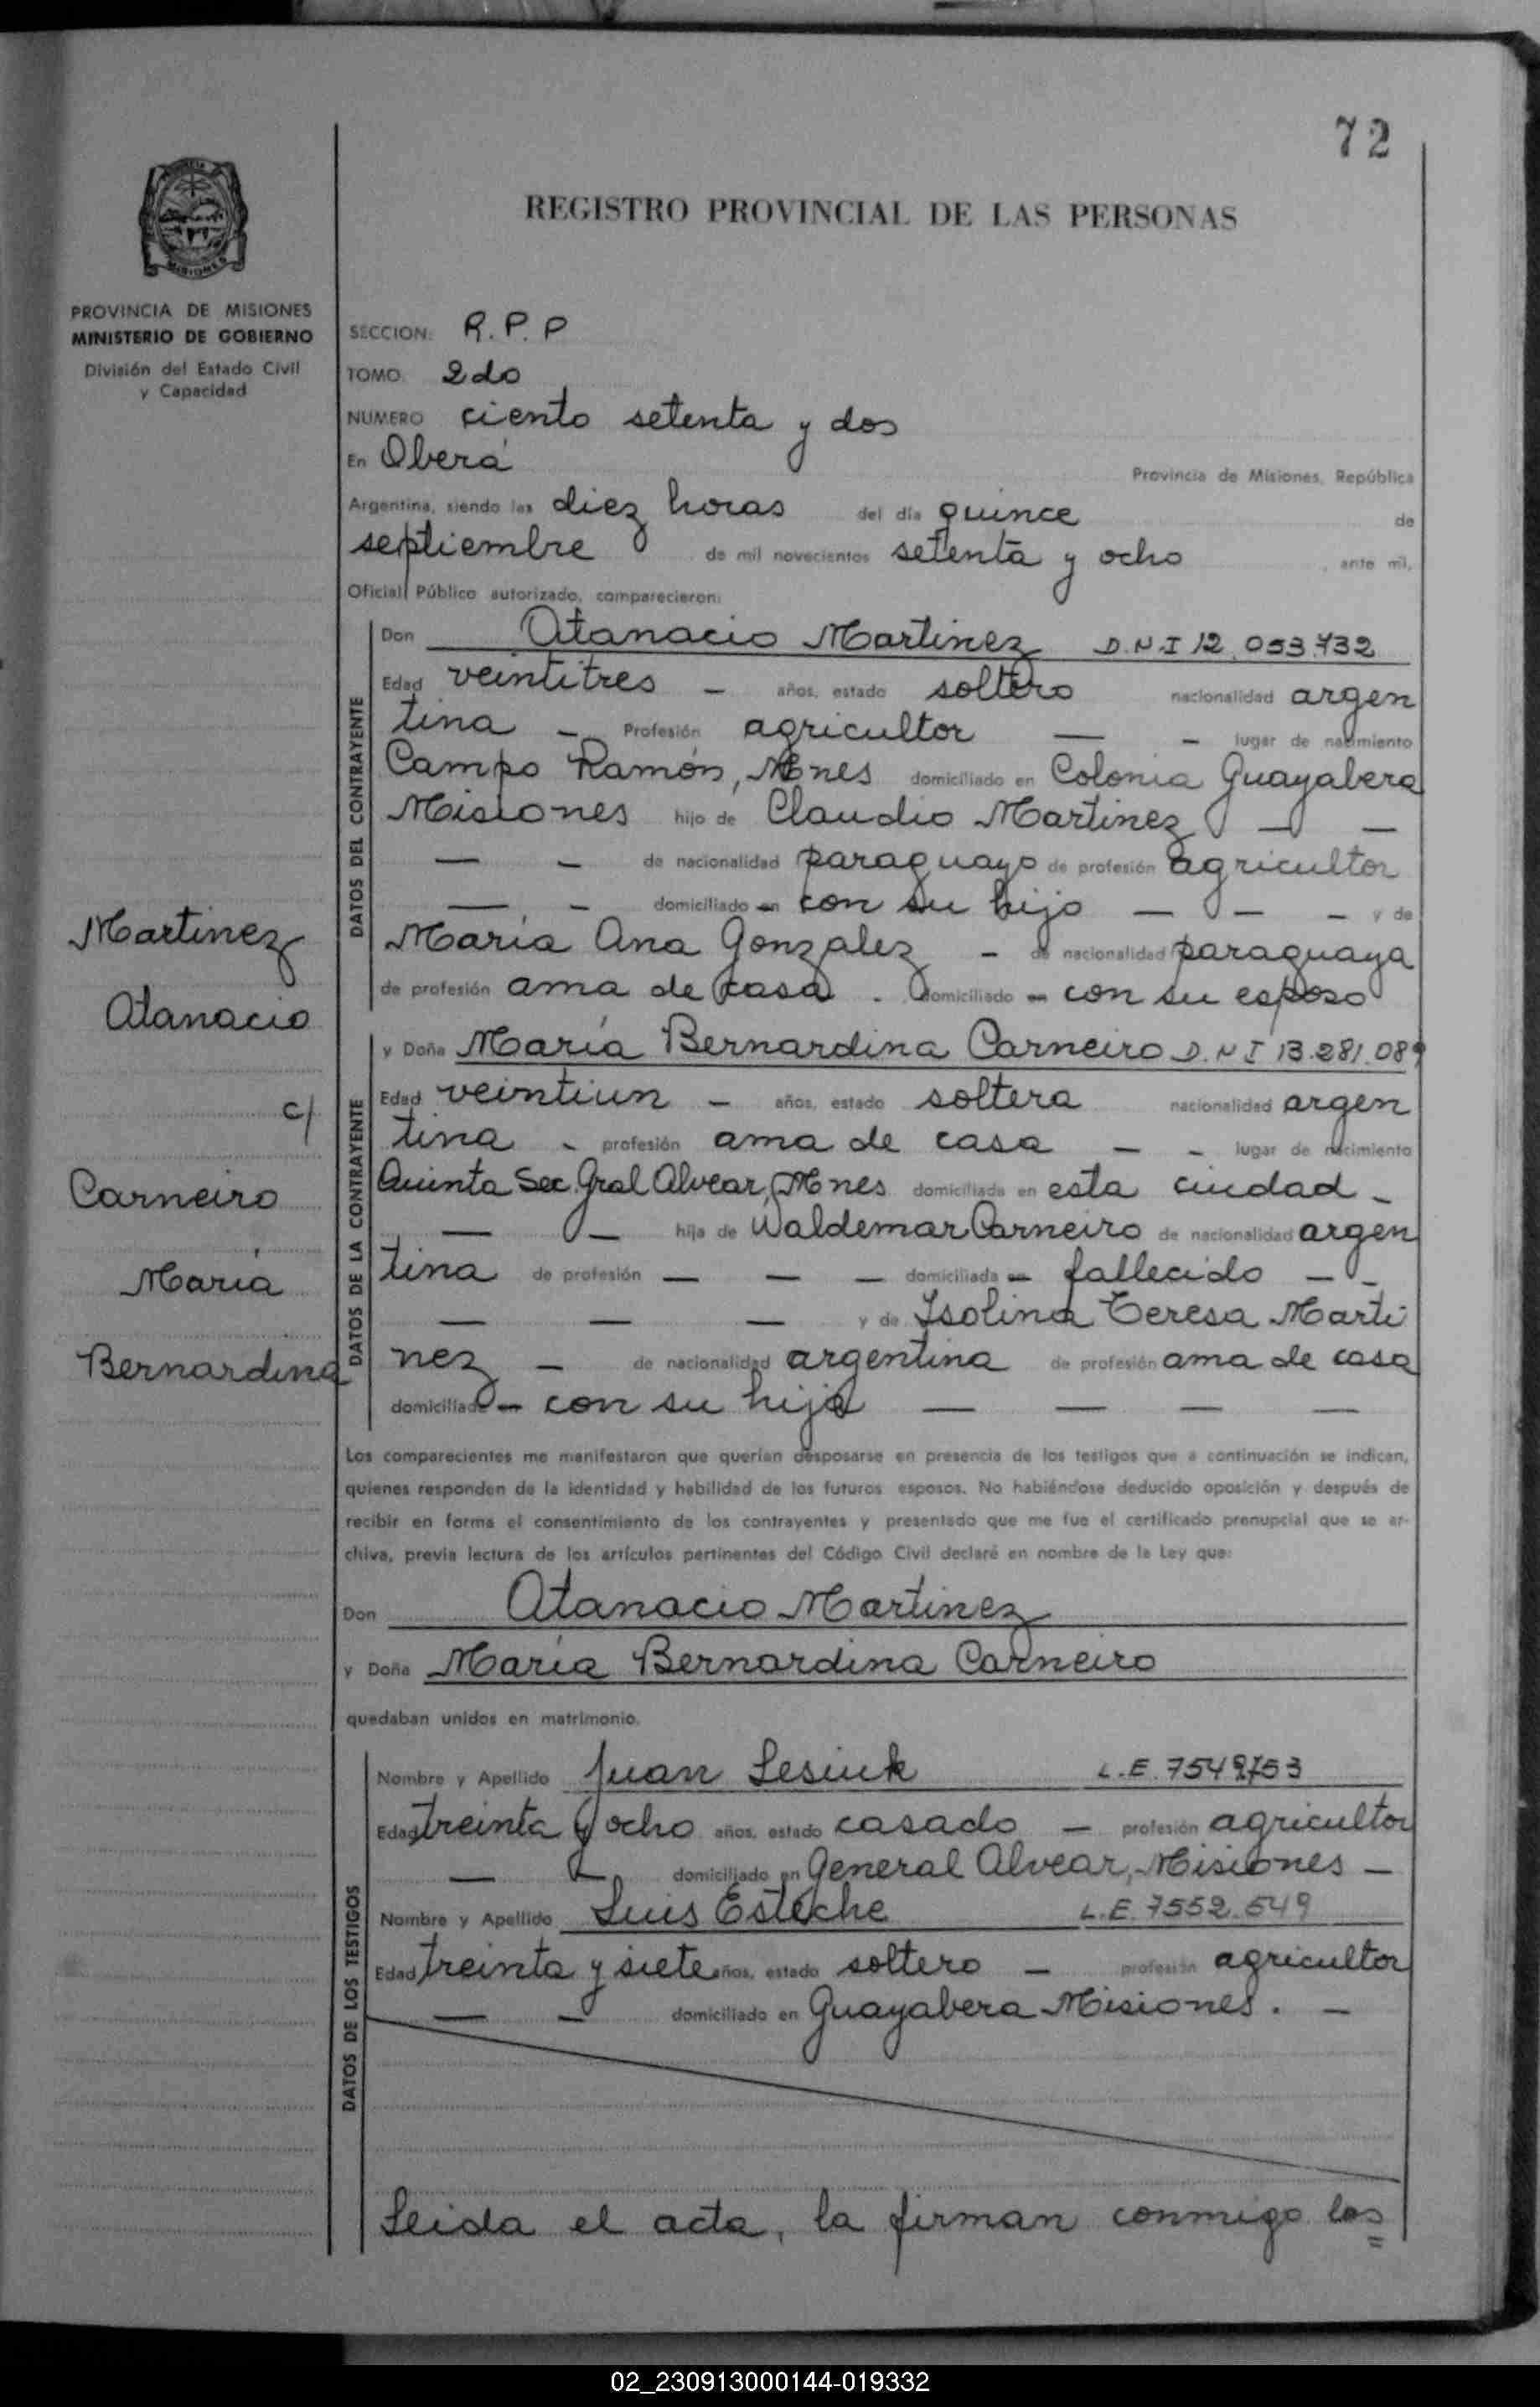 72
REGISTRO PROVINCIAL DE LAS PERSONAS
MISIONES
PROVINCIA DE MISIONES
MINISTERIO DE GOBIERNO
División del Estado Civil
y Capacidad
SECCION: R.P.P
TOMO 2do
NUMERO ciento setenta y dos
En Oberá Provincia de Misiones, República
Argentina, siendo las diez horas del día quince de
septiembre de mil novecientos setenta y ocho, ante mí,
Oficial Público autorizado, comparecieron:
DATOS DEL CONTRAYENTE
Don Atanacio Martinez D.N.I 12.053.732
Edad veintitres - años, estado soltero nacionalidad argen
tina - Profesión agricultor — - lugar de nacimiento
Campo Ramón, Mnes domiciliado en Colonia Guayabera
Misiones hijo de Claudio Martinez — —
— - de nacionalidad paraguayo de profesión agricultor
— - domiciliado en con su hijo — - - y de
María Ana Gonzalez - de nacionalidad paraguaya
de profesión ama de casa. domiciliado en con su esposo
Martinez
Atanacio
c/
Carneiro
María
Bernardina
DATOS DE LA CONTRAYENTE
y Doña María Bernardina Carneiro D.N.I 13.281.089
Edad veintiun - años, estado soltera nacionalidad argen
tina - profesión ama de casa — - lugar de nacimiento
Quinta Sec. Gral Alvear, Mnes domiciliada en esta ciudad -
— - hija de Waldemar Carneiro de nacionalidad argen
tina de profesión — — — domiciliada en fallecido — -
— — — y de Isolina Teresa Marti
nez - de nacionalidad argentina de profesión ama de casa
domiciliada en con su hija — — — —
Los comparecientes me manifestaron que querían desposarse en presencia de los testigos que a continuación se indican,
quienes responden de la identidad y habilidad de los futuros esposos. No habiéndose deducido oposición y después de
recibir en forma el consentimiento de los contrayentes y presentado que me fue el certificado prenupcial que se ar-
chiva, previa lectura de los artículos pertinentes del Código Civil declaré en nombre de la Ley que:
Don Atanacio Martinez
y Doña María Bernardina Carneiro
quedaban unidos en matrimonio.
DATOS DE LOS TESTIGOS
Nombre y Apellido Juan Lesiuk L.E. 7549753
Edad treinta y ocho años, estado casado — profesión agricultor
— - domiciliado en General Alvear, Misiones -
Nombre y Apellido Luis Esteche L.E. 7552.549
Edad treinta y siete años, estado soltero - profesión agricultor
— - domiciliado en Guayabera Misiones. -
Leida el acta, la firman conmigo los
02_230913000144-019332